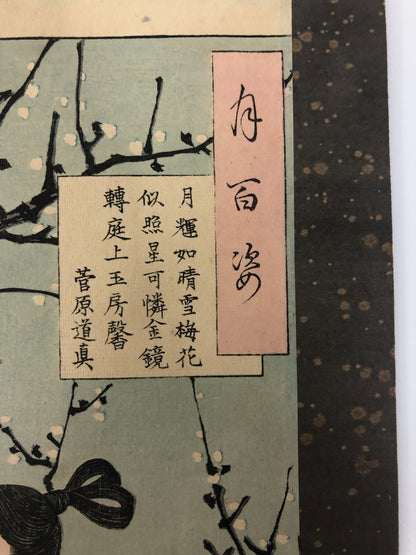 月百姿
月輝如晴雪梅花
似照星可憐金鏡
轉庭上玉房馨
菅原道真